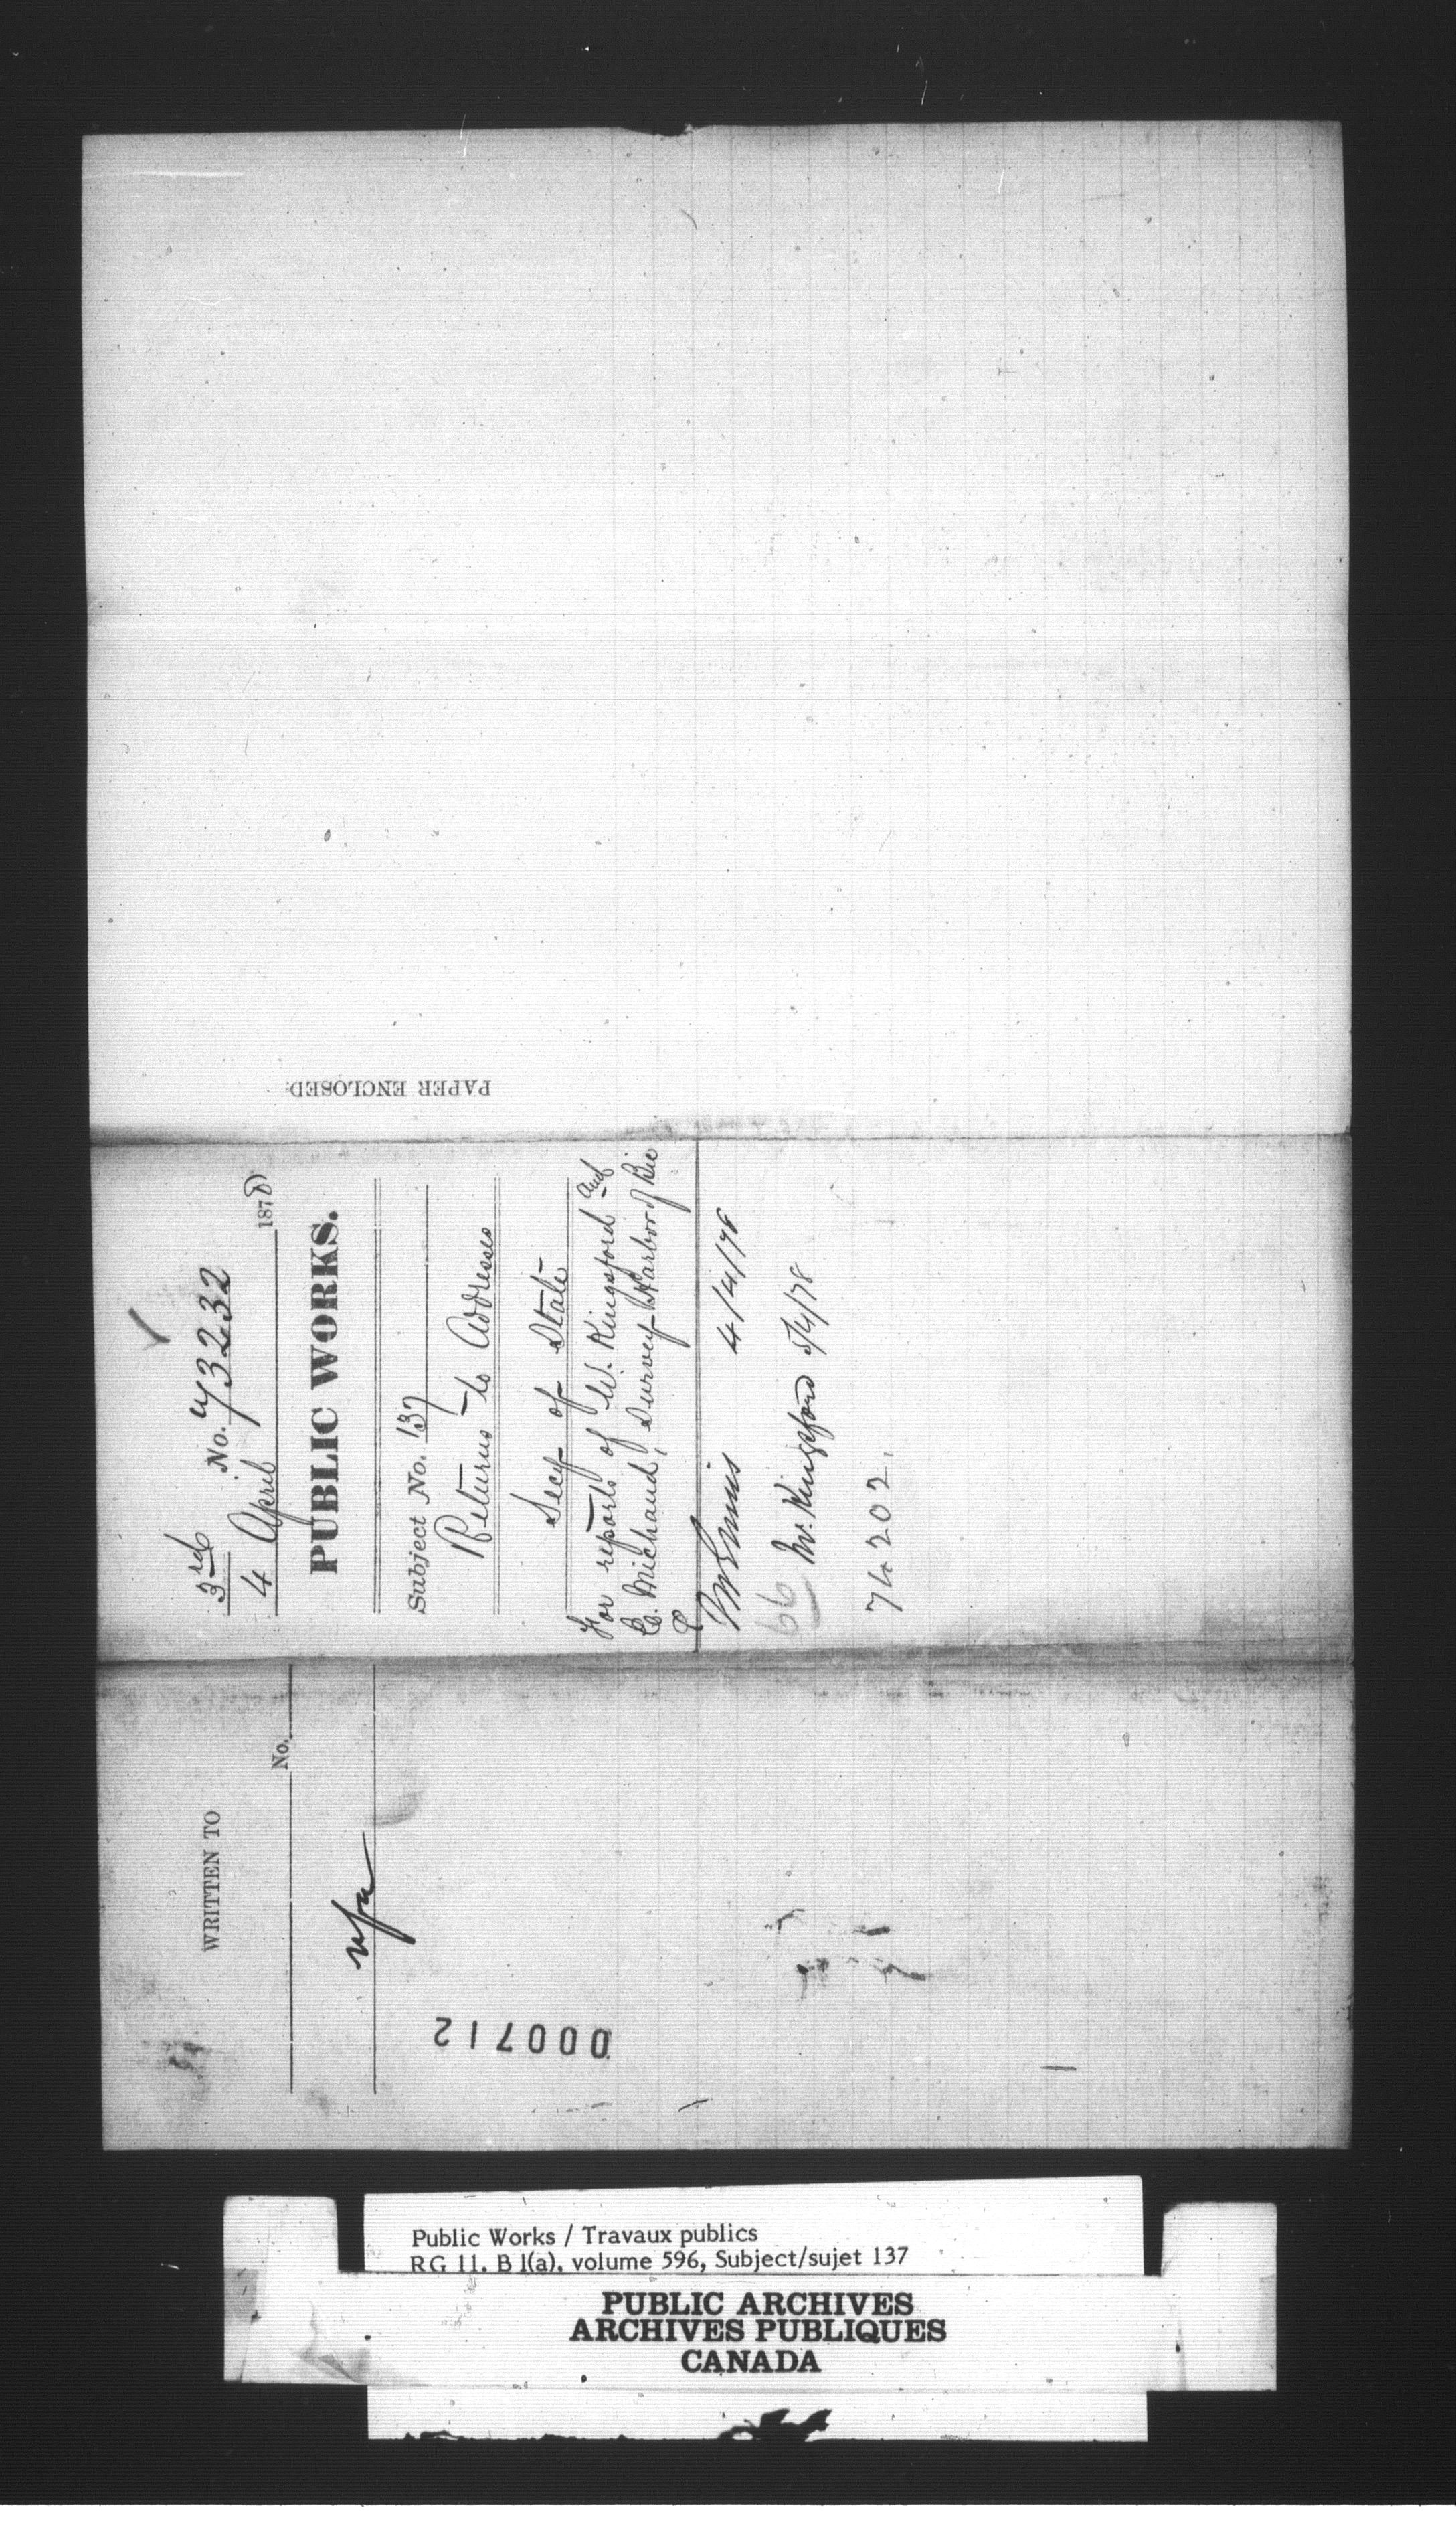 PAPER ENCLOSED.
3rd No. 73232
4 April 1878
PUBLIC WORKS.
Subject No. 137
Returns to Addresses
Secy of State
For reports of W. Kingsford and
Michaud, Survey Harbor of Bic
4/4/78
66 Mr. Kingsford 5/4/78
74202.
WRITTEN TO
No.
000712
Public Works / Travaux publics
RG 11, B 1(a), volume 596, Subject/sujet 137
PUBLIC ARCHIVES
ARCHIVES PUBLIQUES
CANADA